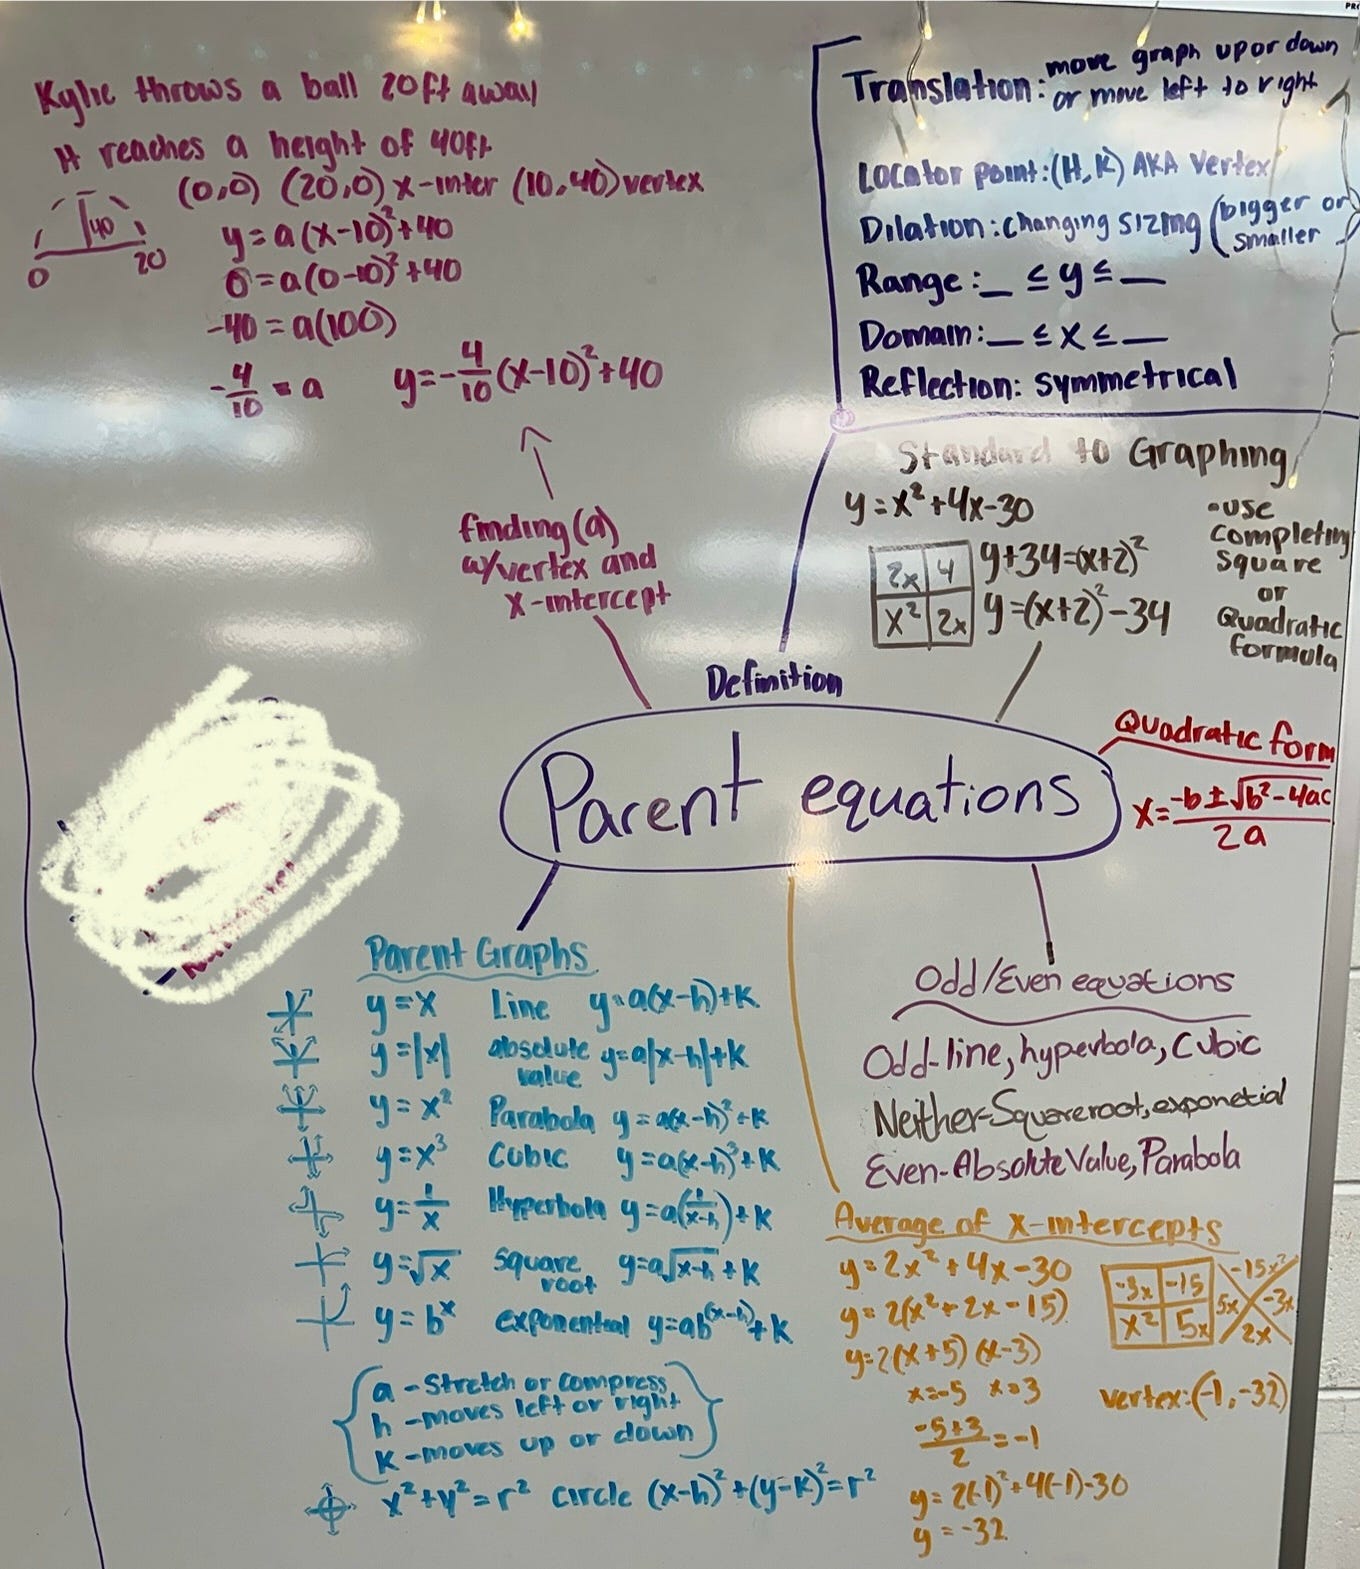 Kylie throws a ball 20ft away
It reaches a height of 40ft
(0,0) (20,0) x-inter (10,40) vertex
40
0 20
y=a(x-10)²+40
0=a(0-10)²+40
-40=a(100)
-4/10 = a y=-4/10(x-10)²+40
finding (a)
w/vertex and
x-intercept
Translation: move graph up or down
or move left to right
Locator point:(H,K) AKA Vertex
Dilation: changing sizing (bigger or
smaller
Range:_ ≤ y ≤ _
Domain:_ ≤ x ≤ _
Reflection: symmetrical
Definition
Standard to Graphing
y=x²+4x-30
2x 4
x² 2x
y+34=(x+2)²
y=(x+2)²-34
-use
completing
square
or
Quadratic
formula
Quadratic form
x=-b±√b²-4ac/2a
Parent equations
Parent Graphs
y=x Line y=a(x-h)+K
y=|x| absolute value y=a|x-h|+K
y=x² Parabola y=a(x-h)²+K
y=x³ Cubic y=a(x-h)³+K
y=1/x Hyperbola y=a(1/x-h)+K
y=√x square root y=a√x-h+K
y=bˣ exponential y=ab⁽ˣ⁻ʰ⁾+K
a -Stretch or compress
h -moves left or right
K -moves up or down
x²+y²=r² circle (x-h)²+(y-K)²=r²
Odd/Even equations
Odd-line, hyperbola, Cubic
Neither-Squareroot, exponetial
Even-Absolute Value, Parabola
Average of x-intercepts
y=2x²+4x-30
y=2(x²+2x-15)
y=2(x+5)(x-3)
x=-5 x=3
-5+3/2=-1
y=2(-1)²+4(-1)-30
y=-32
-3x -15
x² 5x
-15x²
5x -3x
2x
vertex:(-1,-32)